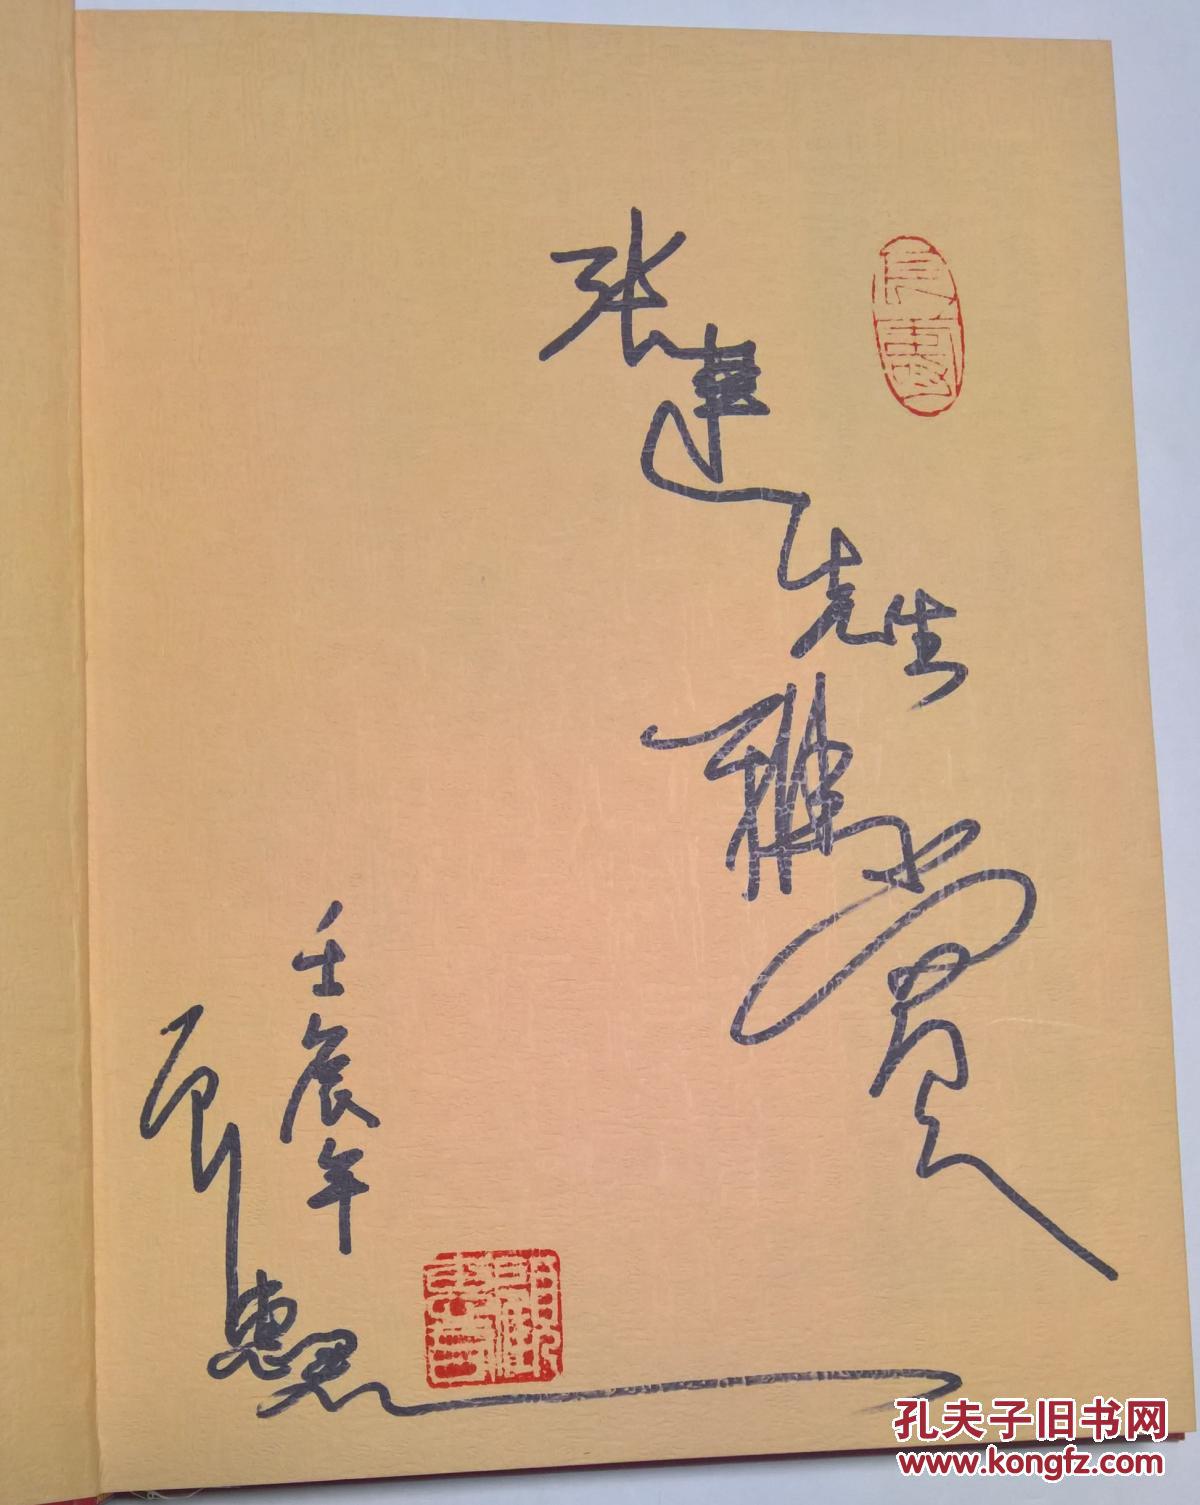 张建先生
雅赏
壬辰年
顾惠君
孔夫子旧书网
www.kongfz.com